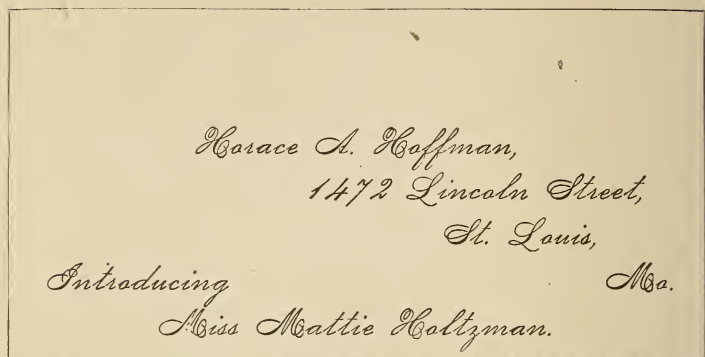 Horace A. Hoffman,
1472 Lincoln Street,
St. Louis,
Mo.
Introducing
Miss Mattie Holtzman.